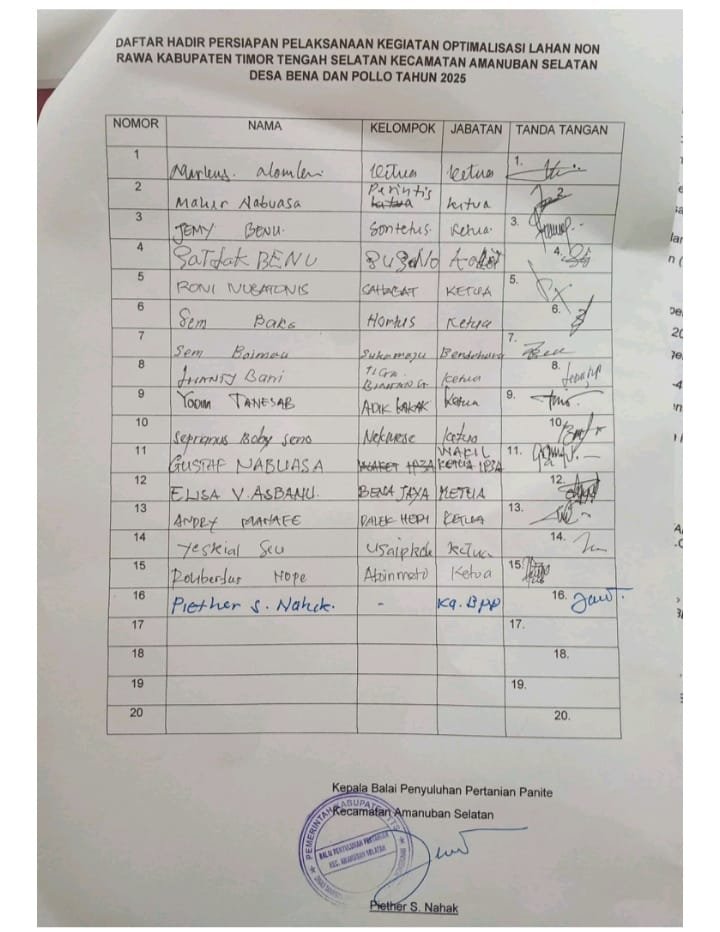 DAFTAR HADIR PERSIAPAN PELAKSANAAN KEGIATAN OPTIMALISASI LAHAN NON
RAWA KABUPATEN TIMOR TENGAH SELATAN KECAMATAN AMANUBAN SELATAN
DESA BENA DAN POLLO TAHUN 2025
NOMOR NAMA KELOMPOK JABATAN TANDA TANGAN
1 Markus. Ketua Ketua 1.
2 Maher Nabuasa Perintis Ketua 2.
3 JEMY BENU. Sontetus Ketua. 3.
4 BENU 4.
5 RONI NUBATONIS SAHABAT KETUA 5.
6 Sem Bako Hortus Ketua 6.
7 Sem Boimau Sukamaju Bendahara 7.
8 Bani TIGA BINTANG Ketua 8.
9 Yodim TANESAB ADIK KAKAK Ketua 9.
10 Seprianus Boby Seno Nekmese Ketua 10.
11 GUSTAF NABUASA WAKIL KETUA IP3A 11.
12 ELISA V. ASBANU. BENA JAYA KETUA 12.
13 ANDRY MANAFE DALEK HEDI KETUA 13.
14 Yeskial Seu Ketua 14.
15 Nope Atoinmeto Ketua 15.
16 Piether S. Nahak. - Ka. BPP 16.
17 17.
18 18.
19 19.
20 20.
Kepala Balai Penyuluhan Pertanian Panite
Kecamatan Amanuban Selatan
PEMERINTAH KABUPATEN TTS
BALAI PENYULUHAN PERTANIAN
KEC. AMANUBAN SELATAN
Piether S. Nahak